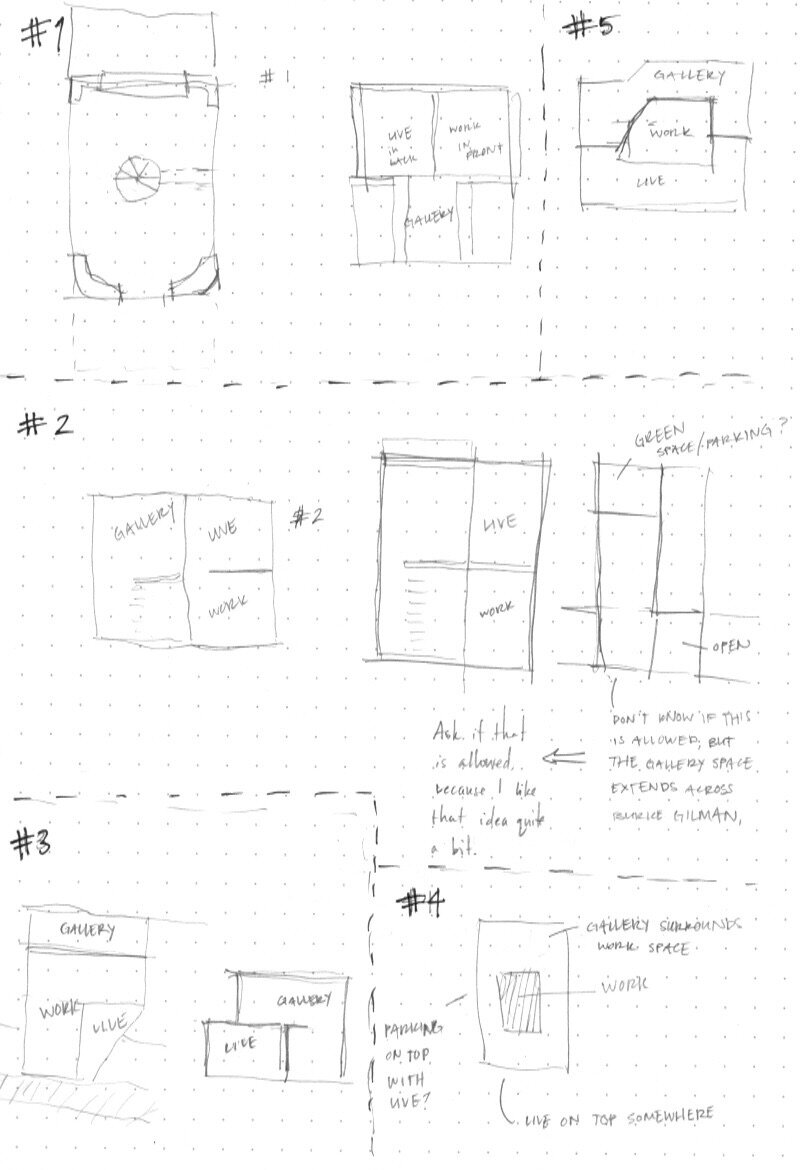 #1
#1
LIVE
IN
BACK
WORK
IN
FRONT
GALLERY
#5
GALLERY
WORK
LIVE
#2
GALLERY
LIVE
WORK
#2
LIVE
WORK
GREEN
SPACE/PARKING?
OPEN
Ask if that
is allowed
because I like
that idea quite
a bit.
DON'T KNOW IF THIS
IS ALLOWED, BUT
THE GALLERY SPACE
EXTENDS ACROSS
BURKE GILMAN,
#3
GALLERY
WORK
LIVE
GALLERY
LIVE
#4
GALLERY SURROUNDS
WORK SPACE
WORK
PARKING
ON TOP
WITH
LIVE?
LIVE ON TOP SOMEWHERE